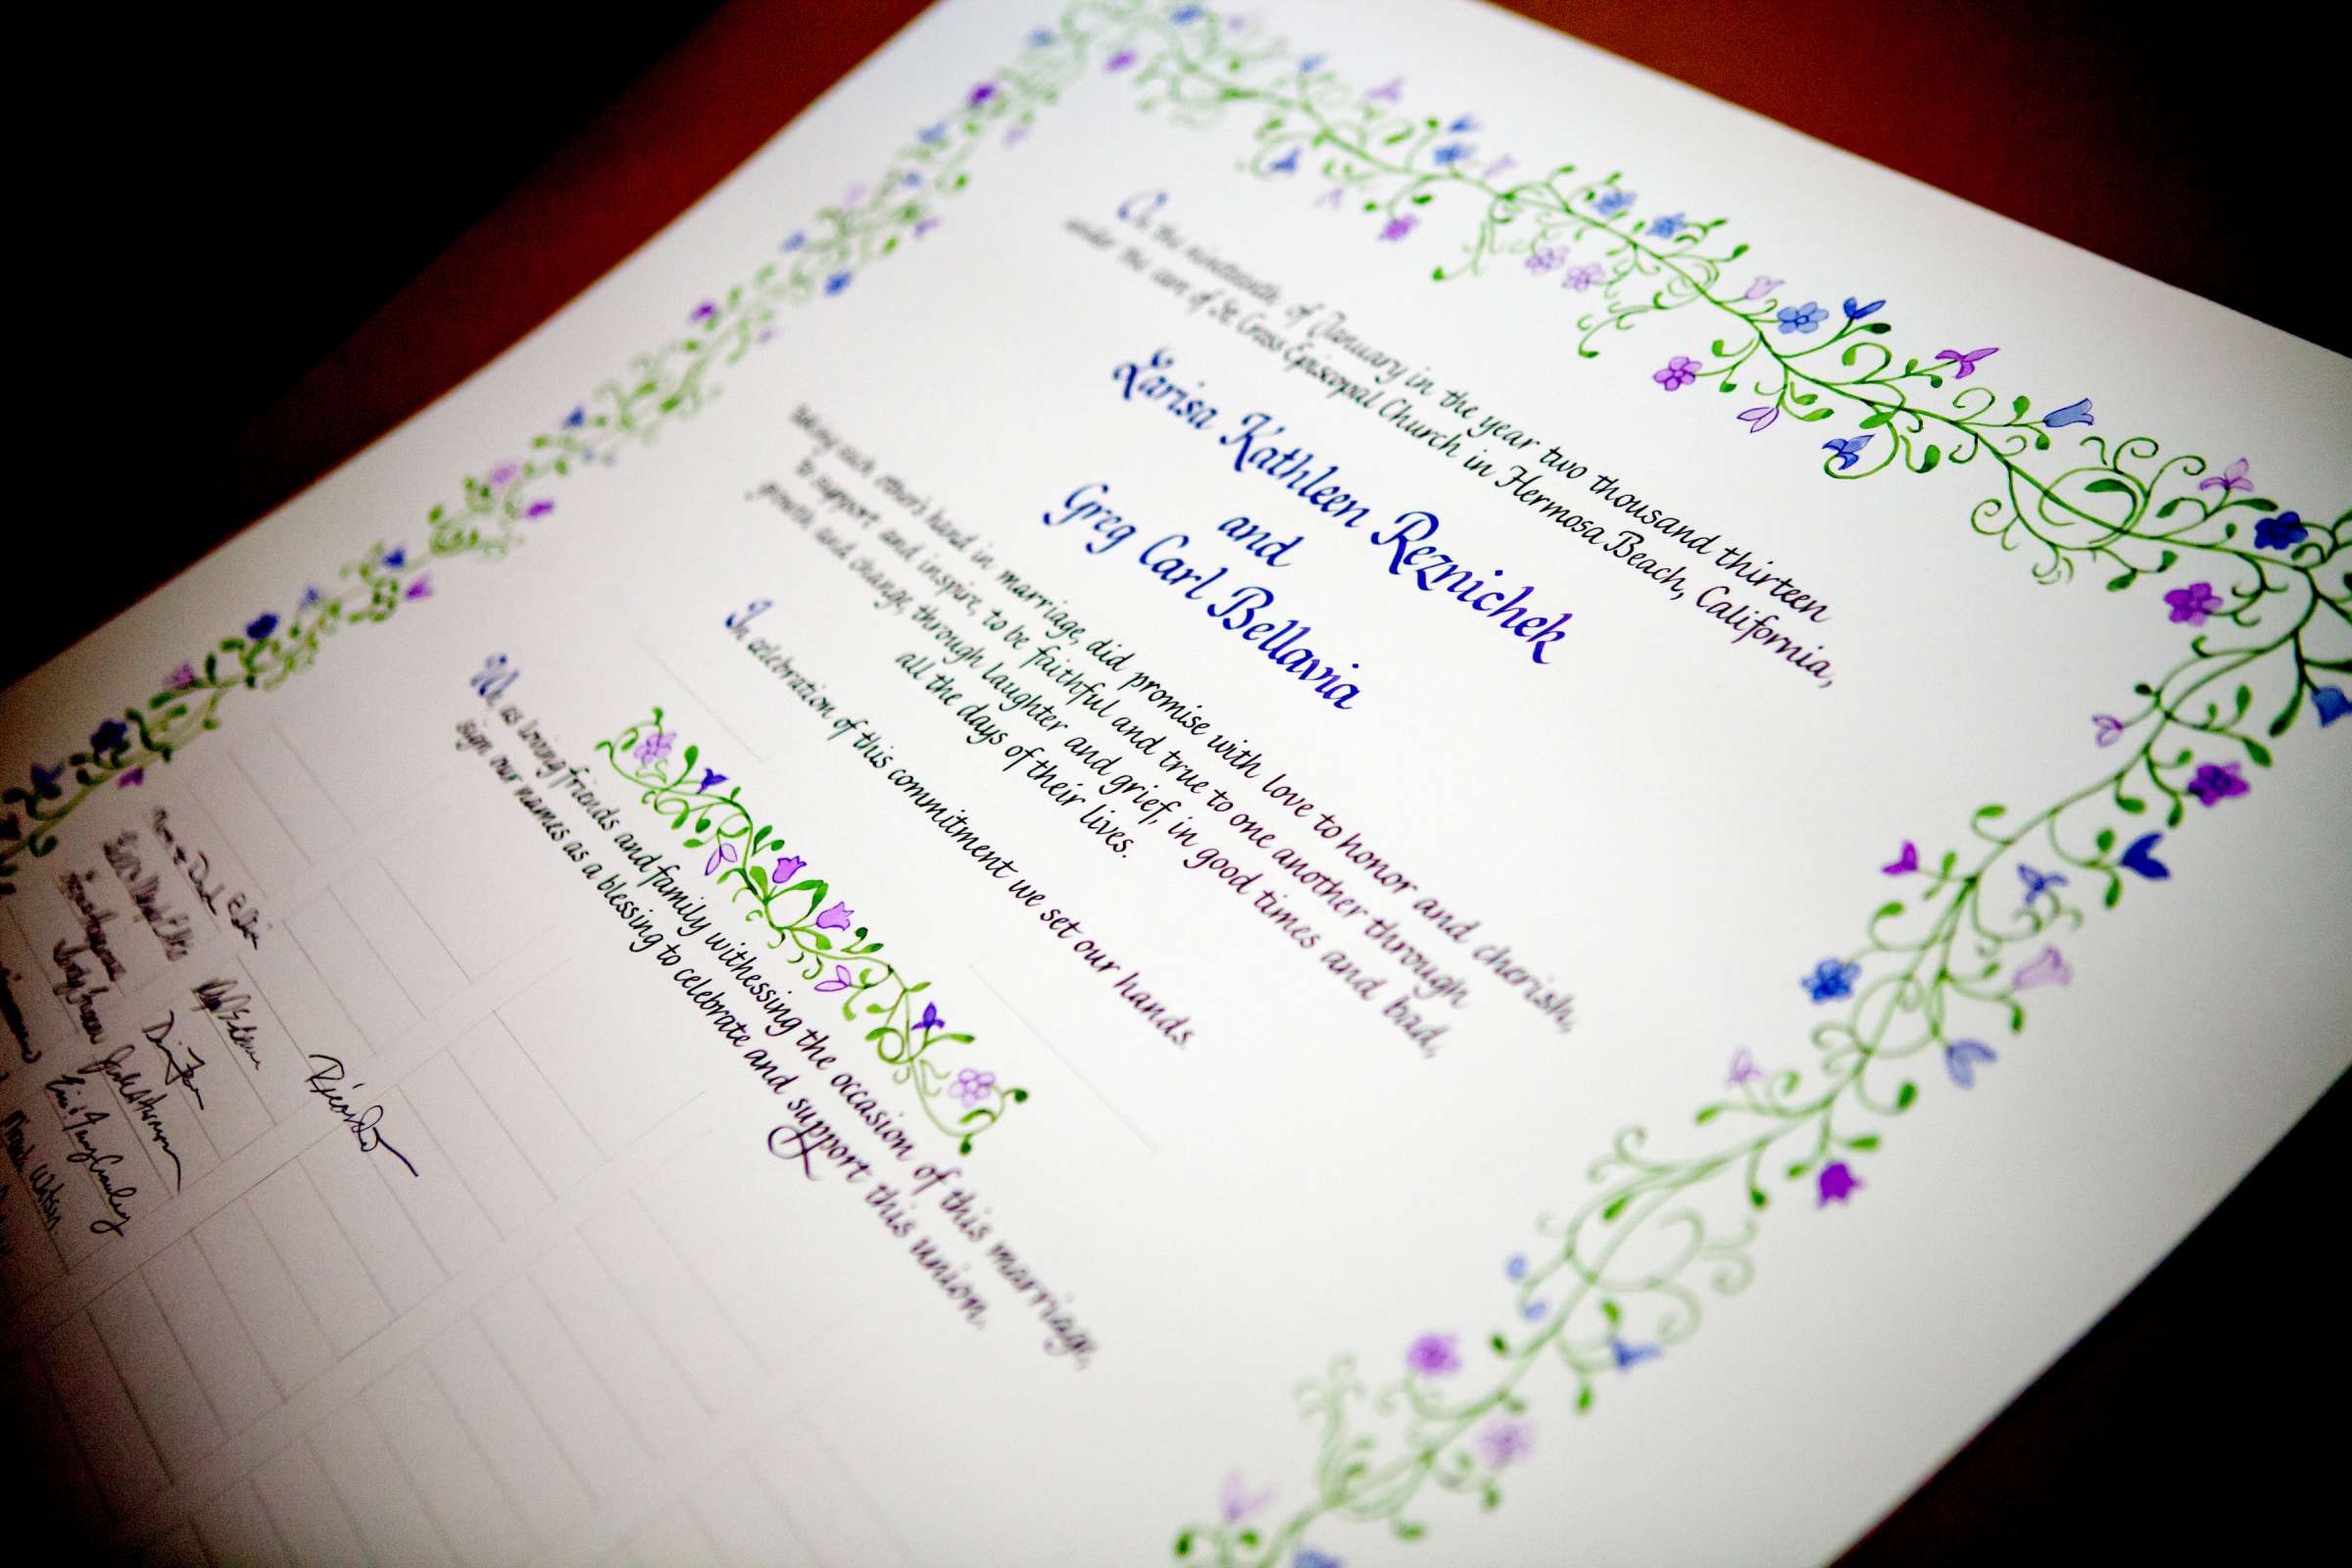 On the nineteenth of January in the year two thousand thirteen
under the care of St. Cross Episcopal Church in Hermosa Beach, California,
Larisa Kathleen Reznichek
and
Greg Carl Bellavia
taking each other's hand in marriage, did promise with love to honor and cherish,
to support and inspire, to be faithful and true to one another through
growth and change, through laughter and grief, in good times and bad,
all the days of their lives.
In celebration of this commitment we set our hands.
We, as loving friends and family witnessing the occasion of this marriage,
sign our names as a blessing to celebrate and support this union.
Mark Watson